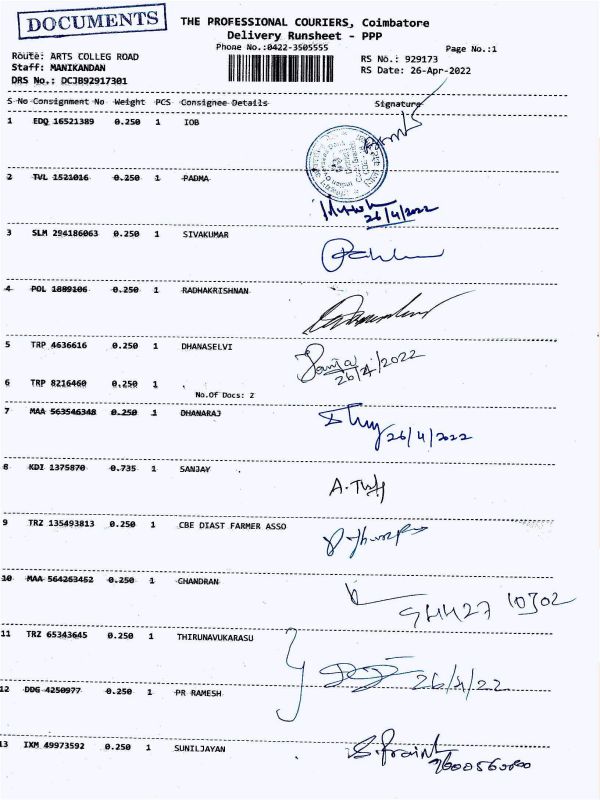 DOCUMENTS
THE PROFESSIONAL COURIERS, Coimbatore
Delivery Runsheet - PPP
Phone No.:0422-3505555
Page No.:1
Route: ARTS COLLEG ROAD
Staff: MANIKANDAN
DRS No.: DCJB92917301
RS No.: 929173
RS Date: 26-Apr-2022
S No Consignment No Weight PCS Consignee Details Signature
1 EDQ 16521389 0.250 1 IOB
2 TVL 1521016 0.250 1 PADMA
26/4/2022
3 SLM 294186063 0.250 1 SIVAKUMAR
4 POL 1889106 0.250 1 RADHAKRISHNAN
5 TRP 4636616 0.250 1 DHANASELVI
26/4/2022
6 TRP 8216460 0.250 1
No.Of Docs: 2
7 MAA 563546348 0.250 1 DHANARAJ
26/4/2022
8 KDI 1375870 0.735 1 SANJAY
9 TRZ 135493813 0.250 1 CBE DIAST FARMER ASSO
10 MAA 564263452 0.250 1 CHANDRAN
11 TRZ 65343645 0.250 1 THIRUNAVUKARASU
26/4/22
12 DDG 4250977 0.250 1 PR RAMESH
13 IXM 49973592 0.250 1 SUNILJAYAN